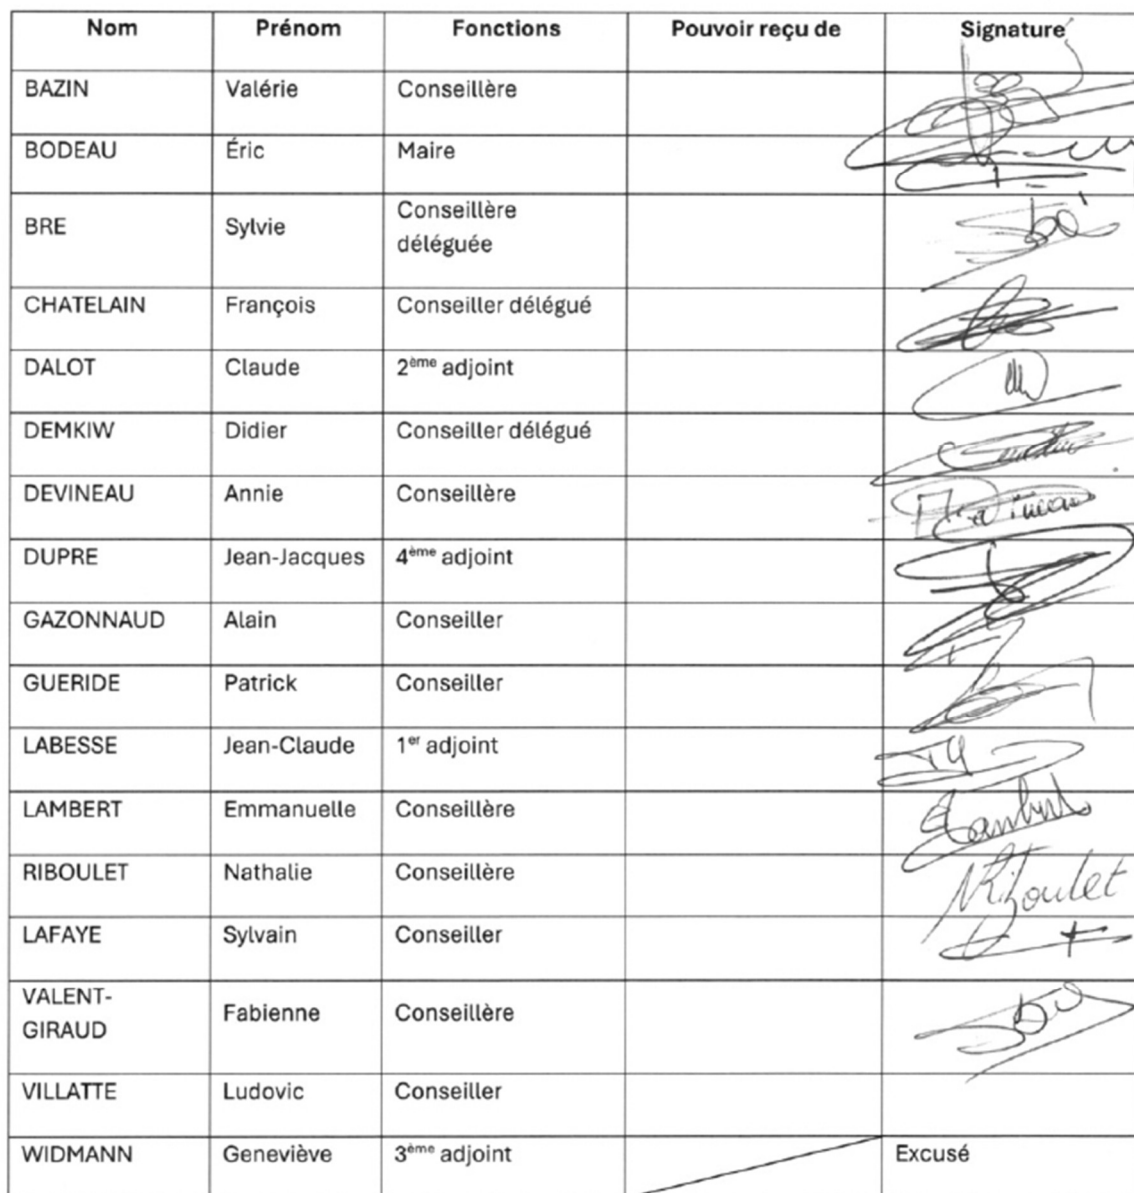 Nom Prénom Fonctions Pouvoir reçu de Signature
BAZIN Valérie Conseillère
BODEAU Éric Maire
BRE Sylvie Conseillère
déléguée
CHATELAIN François Conseiller délégué
DALOT Claude 2ème adjoint
DEMKIW Didier Conseiller délégué
DEVINEAU Annie Conseillère
DUPRE Jean-Jacques 4ème adjoint
GAZONNAUD Alain Conseiller
GUERIDE Patrick Conseiller
LABESSE Jean-Claude 1er adjoint
LAMBERT Emmanuelle Conseillère
RIBOULET Nathalie Conseillère NRiboulet
LAFAYE Sylvain Conseiller
VALENT-
GIRAUD Fabienne Conseillère
VILLATTE Ludovic Conseiller
WIDMANN Geneviève 3ème adjoint Excusé